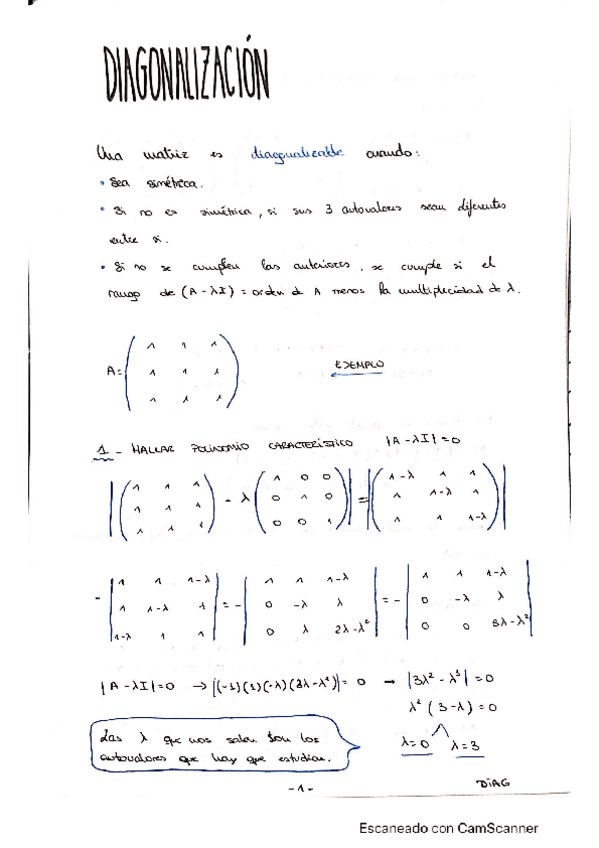 DIAGONALIZACIÓN
Una matriz es diagonalizable cuando:
• Sea simétrica.
• Si no es simétrica, si sus 3 autovalores sean diferentes
entre si.
• Si no se cumplen las anteriores, se cumple si el
rango de (A - λI) = orden de A menos la multiplicidad de λ.
A = ( 1 1 1
1 1 1
1 1 1 )
EJEMPLO
1 - HALLAR POLINOMIO CARACTERÍSTICO |A - λI| = 0
| ( 1 1 1 ) - λ ( 1 0 0 ) | = | ( 1-λ 1 1 ) |
| ( 1 1 1 ) ( 0 1 0 ) | | ( 1 1-λ 1 ) |
| ( 1 1 1 ) ( 0 0 1 ) | | ( 1 1 1-λ ) |
- | 1 1 1-λ | = - | 1 1 1-λ | = - | 1 1 1-λ |
| 1 1-λ 1 | | 0 -λ λ | | 0 -λ λ |
| 1-λ 1 1 | | 0 λ 2λ-λ² | | 0 0 3λ-λ² |
|A - λI| = 0 → |(-1)(1)(-λ)(3λ-λ²)| = 0 → |3λ² - λ³| = 0
λ² (3-λ) = 0
λ=0 λ=3
Las λ que nos salen son los
autovalores que hay que estudiar.
-1-
DIAG
Escaneado con CamScanner